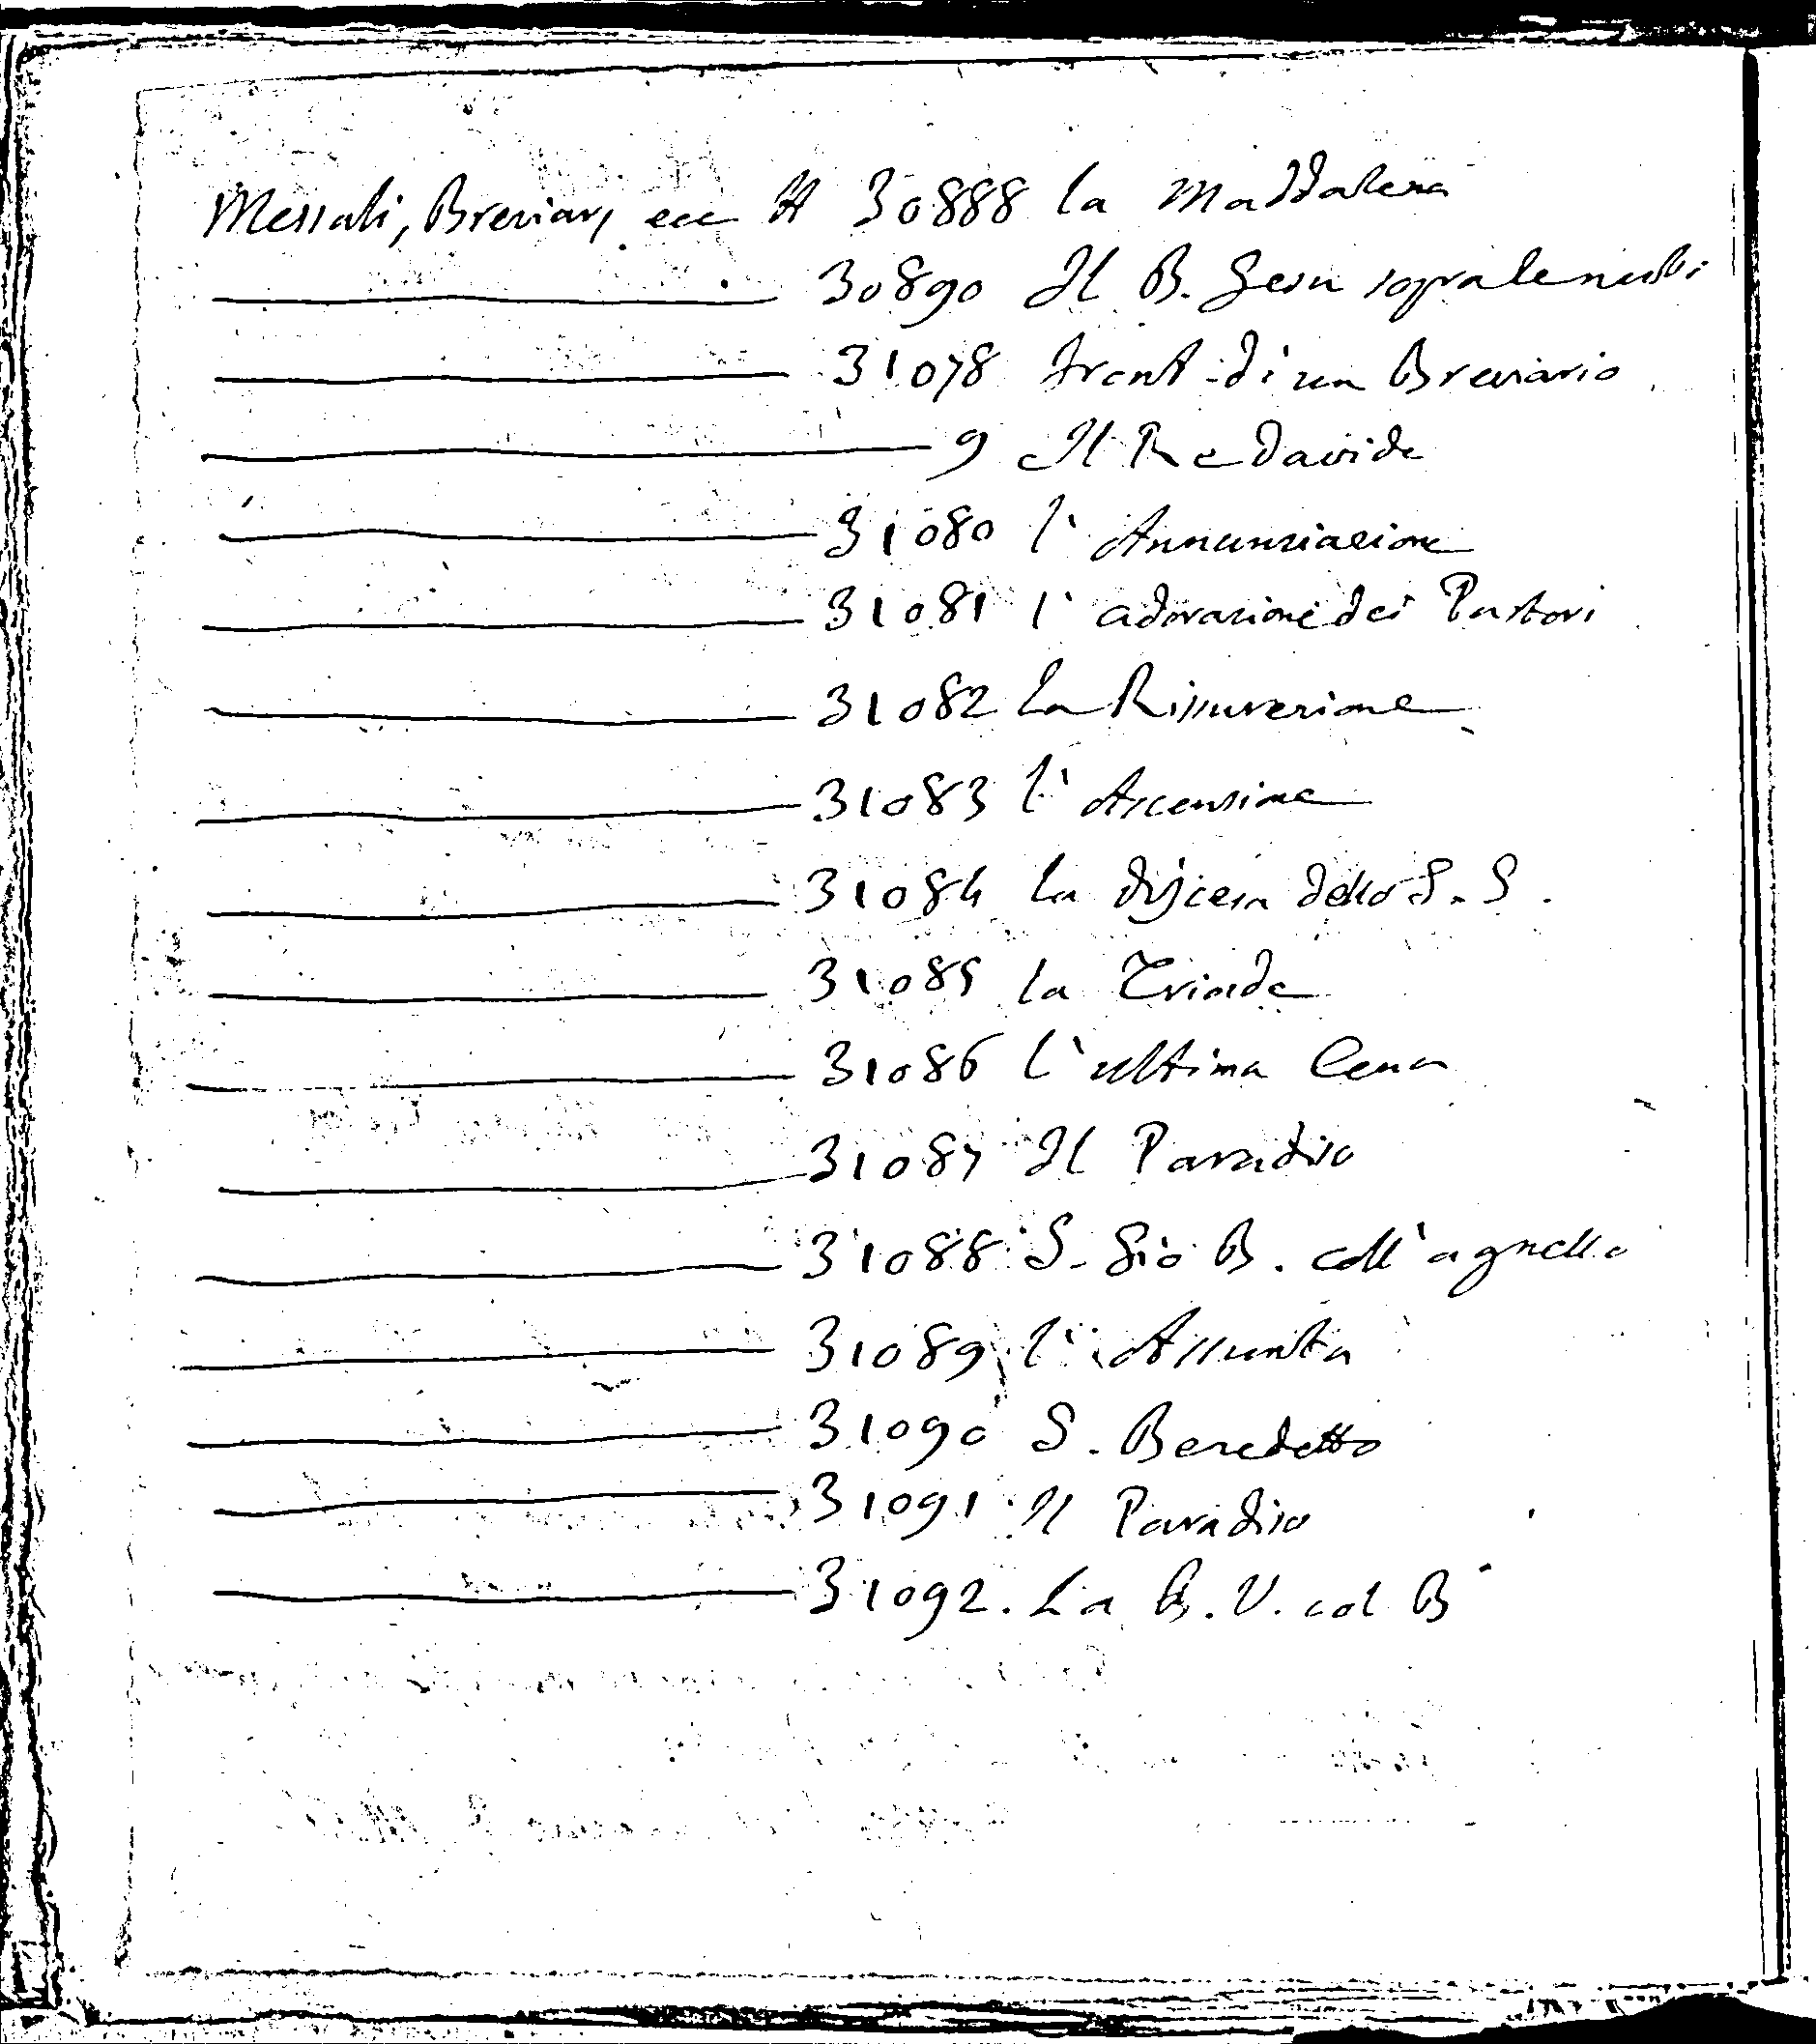 Messali, Breviarj ecc A 30888 la Maddalena
30890 Il B. Gesu sopra le nubi
31078 front. di un Breviario
9 Il Re Davide
31080 l'Annunziazione
31081 l'adorazione dei Pastori
31082 La Rissurezione
31083 l'Ascensione
31084 La discesa dello S. S.
31085 la Triade
31086 l'ultima Cena
31087 Il Paradiso
31088 S. Gio B. coll'agnello
31089 l'Assunta
31090 S. Benedetto
31091 Il Paradiso
31092. La B. V. col B